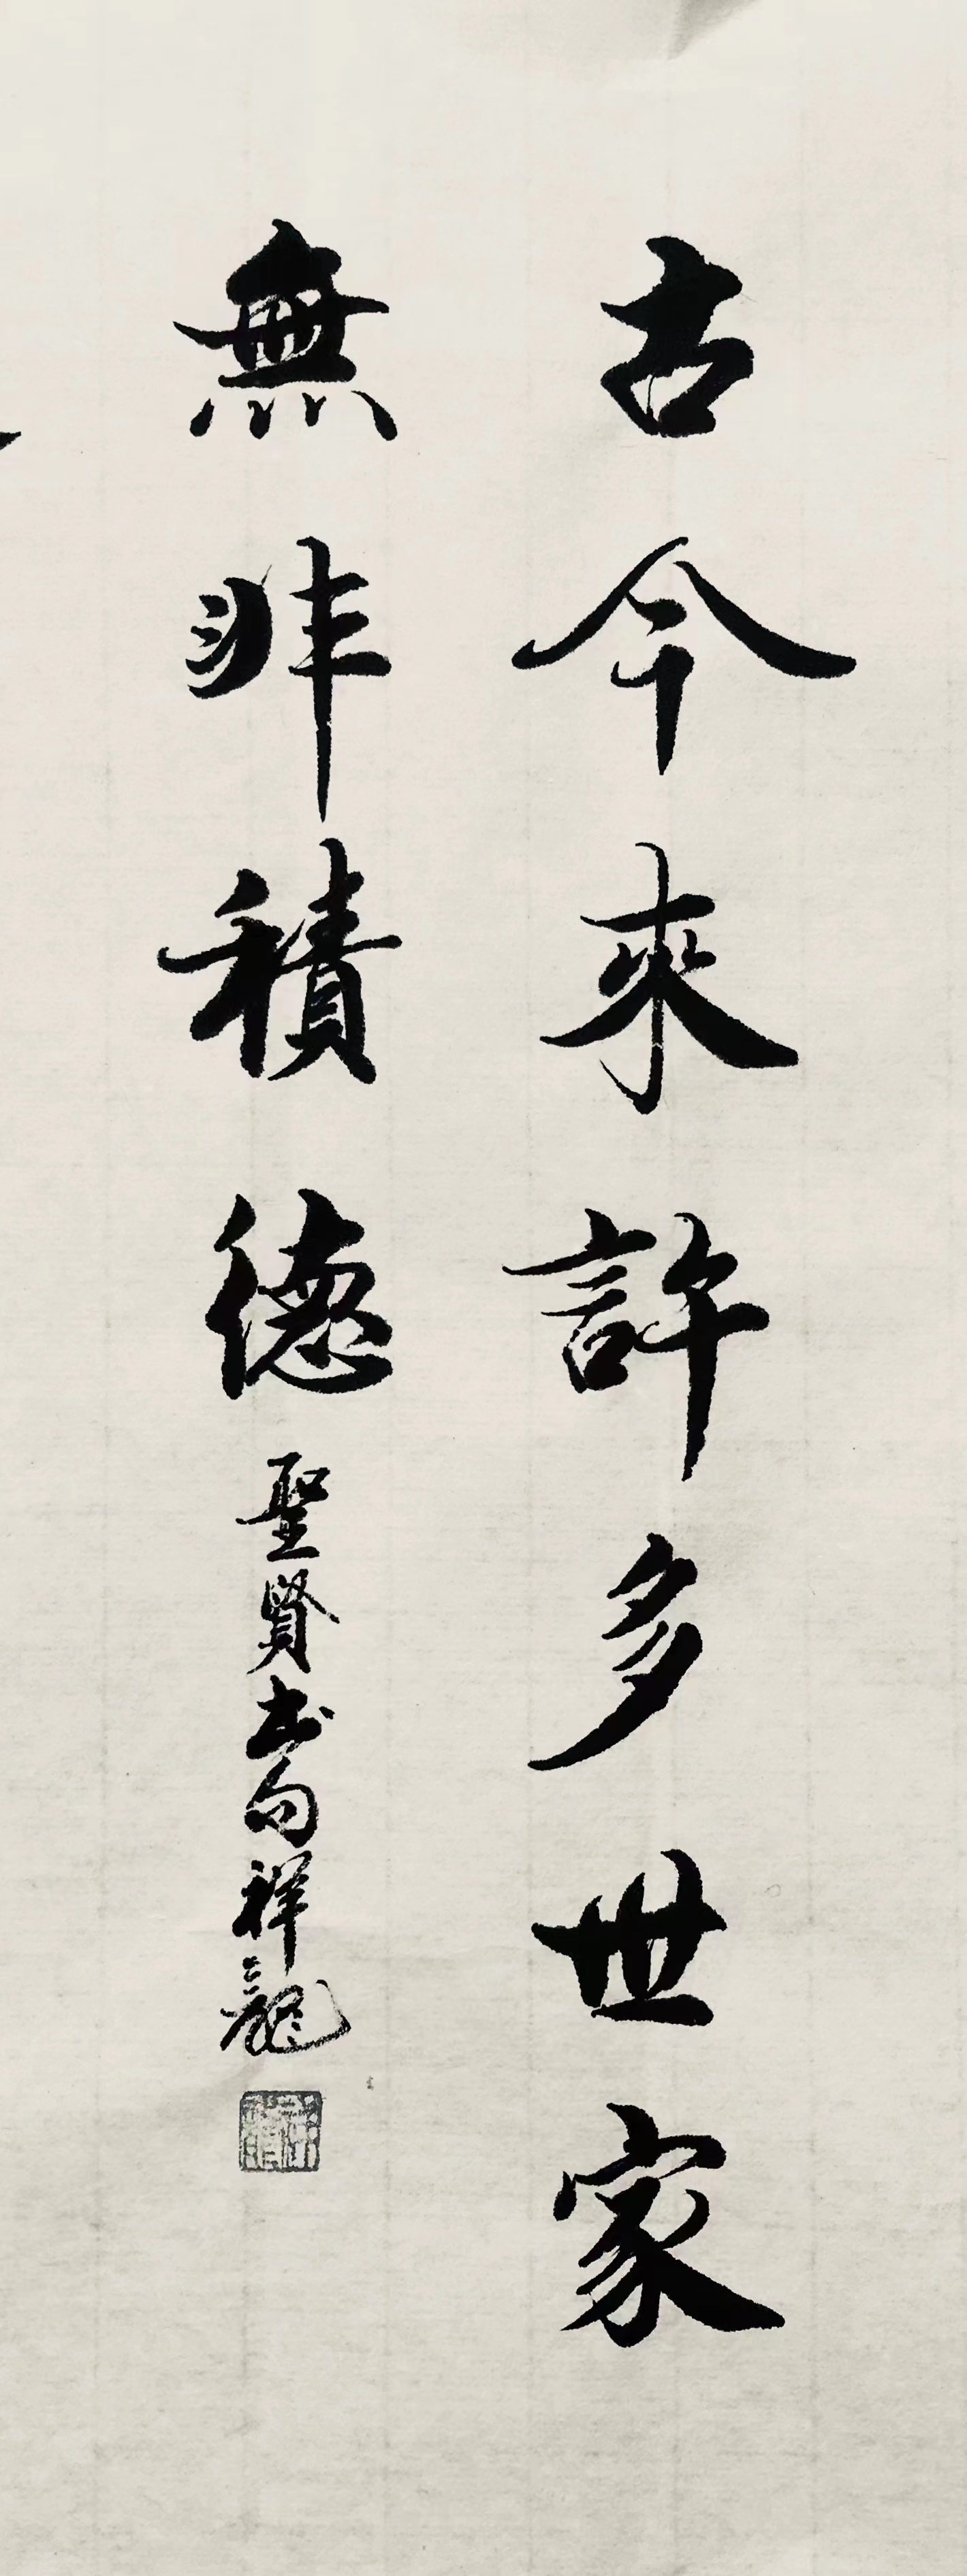 古今來許多世家
無非積德聖賢書句祥龍